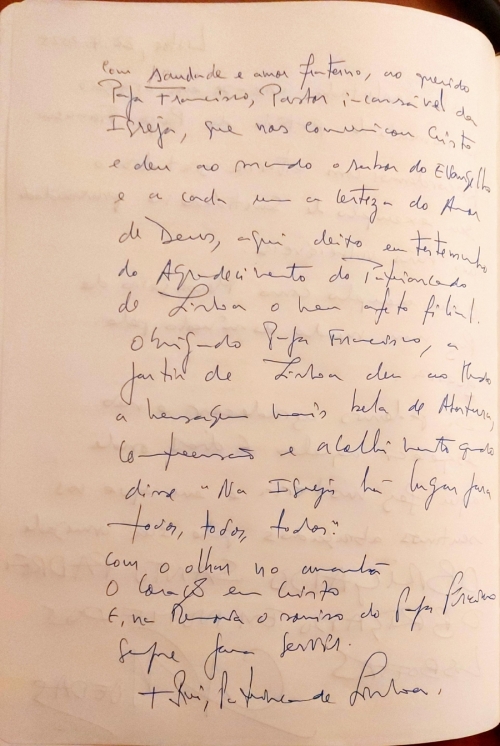 Com saudade e amor fraterno, ao querido
Papa Francisco, Pastor incansável da
Igreja, que nos comunicou Cristo
e deu ao mundo o sabor do Evangelho
e a cada um a certeza do Amor
de Deus, aqui deixo em testemunho
do Agradecimento do Patriarcado
de Lisboa o meu afeto filial.
Obrigado Papa Francisco, a
partir de Lisboa deu ao Mundo
a mensagem mais bela de Abertura,
Compreensão e acolhimento quando
disse "Na Igreja há lugar para
todos, todos, todos."
Com o olhar no amanhã
O Coração em Cristo
E, na Memória o sorriso do Papa Francisco
sempre para Servir.
+ Rui, Patriarca de Lisboa.